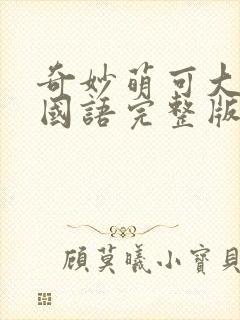 奇妙萌可大
國語完整版
顧莫曦小寶貝